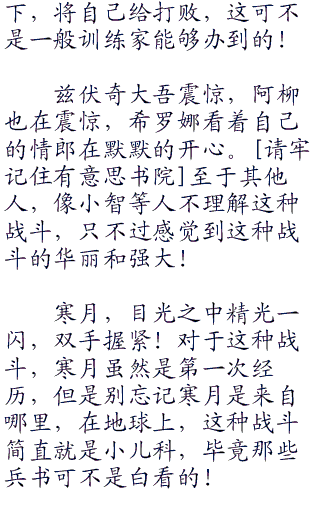 下，将自己给打败，这可不
是一般训练家能够办到的！
兹伏奇大吾震惊，阿柳
也在震惊，希罗娜看着自己
的情郎在默默的开心。[请牢
记住有意思书院]至于其他
人，像小智等人不理解这种
战斗，只不过感觉到这种战
斗的华丽和强大！
寒月，目光之中精光一
闪，双手握紧！对于这种战
斗，寒月虽然是第一次经
历，但是别忘记寒月是来自
哪里，在地球上，这种战斗
简直就是小儿科，毕竟那些
兵书可不是白看的！